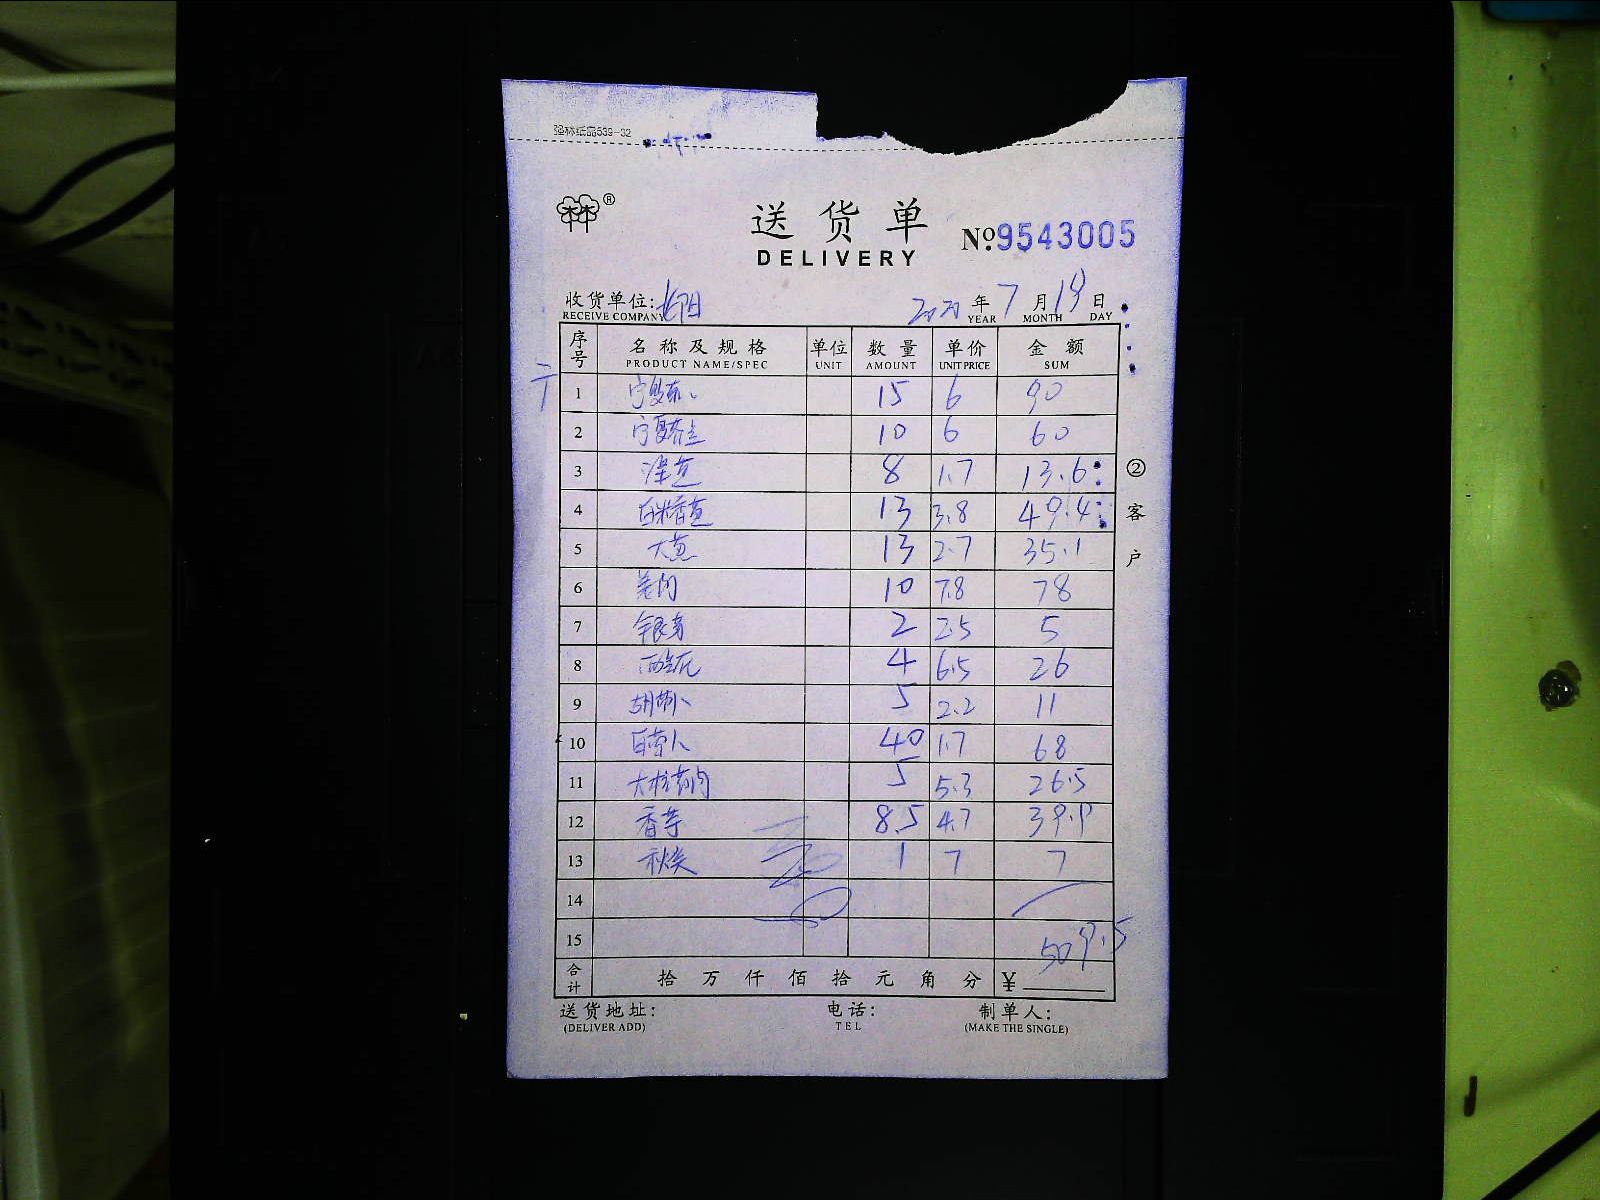 强林纸品539-32
送货单
DELIVERY
№9543005
收货单位: 2020年7月19日
RECEIVE COMPANY YEAR MONTH DAY
序号 名称及规格 单位 数量 单价 金额
PRODUCT NAME/SPEC UNIT AMOUNT UNIT PRICE SUM
1 15 6 90
2 宁夏芥兰 10 6 60
3 8 1.7 13.6
4 13 3.8 49.4
5 大葱 13 2.7 35.1
6 10 7.8 78
7 2 2.5 5
8 4 6.5 26
9 5 2.2 11
10 40 1.7 68
11 5 5.3 26.5
12 香芋 8.5 4.7 39.9
13 秋葵 1 7 7
14
15 509.5
合计 拾万仟佰拾元角分 ¥
送货地址: 电话: 制单人:
(DELIVER ADD) TEL (MAKE THE SINGLE)
②客户